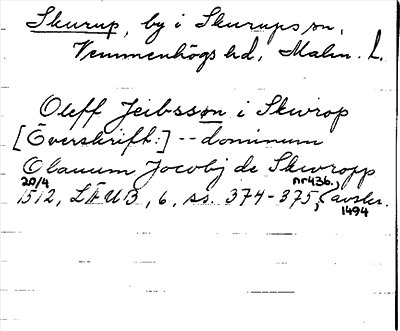 Skurup, by i Skurups sn,
Vemmenhögs hd, Malm. L.
Oleff Jeibssøn i Skwrop
[Överskrift:] -- dominum
Olauum Jocobj de Skwropp
20/4 nr 436.
1512, LÄUB, 6, ss. 374-375, (avskr.
1494